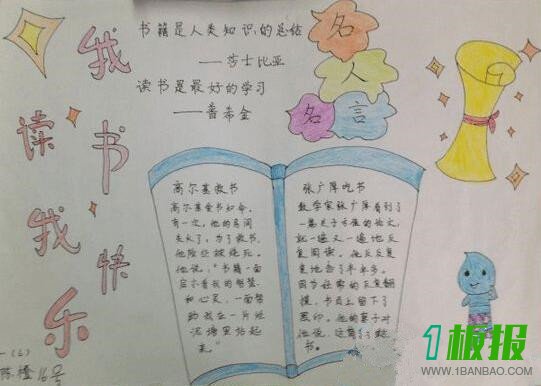 我读书我快乐
书籍是人类知识的总结
——莎士比亚
读书是最好的学习
——普希金
名人名言
高尔基救书
高尔基爱书如命。
有一次，他的房间
失火了，为了救书，
他险些被烧死。
他说："书籍一面
启示着我的智慧
和心灵，一面帮
助我在一片烂
泥塘里站起
来。"
张广厚吃书
数学家张广厚看到了
一篇关于方值的论文，
就一遍又一遍地反
复阅读。他反反复
复地念了半年多。
因为经常的反复翻
摸，书页上留下了
黑印。他的妻子对
他说，这哪
书。
一(6)
陈橙 16号
1板报
WWW.1BANBAO.COM